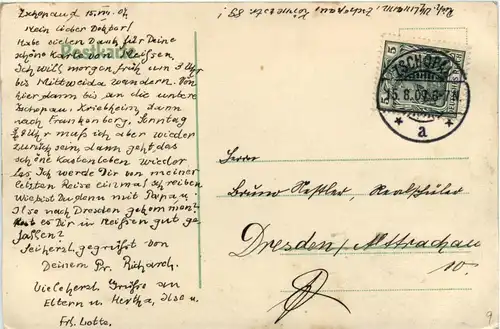 Zschopau d. 15. VIII. 07
Mein lieber Doktor!
Habe vielen Dank für Deine
schöne Karte von Meißen.
Ich will morgen früh um 3 Uhr
bis Mittweida wandern. Von
hier dann bis an die untere
Zschopau, Kriebstein, dann
nach Frankenberg. Sonntag
8 Uhr muß ich aber wieder
zurück sein, dann geht das
schöne Kastenleben wieder
los. Ich werde Dir von meiner
letzten Reise einmal schreiben
Wie bist Du denn mit Papa u.
Ilse nach Dresden gekommen?
Hat es Dir in Meißen gut ge
fallen?
Sei herzl. gegrüßt von
Deinem Br. Richard.
Viele herzl. Grüße an
Eltern u. Hertha, Ilse u.
Frl. Lotte.
Postkarte
Zschopau,
5
ZSCHOPAU
15.8.07.
a
Herrn
Bruno Nestler, Realschüler
Dresden/Alttrachau
10.
9